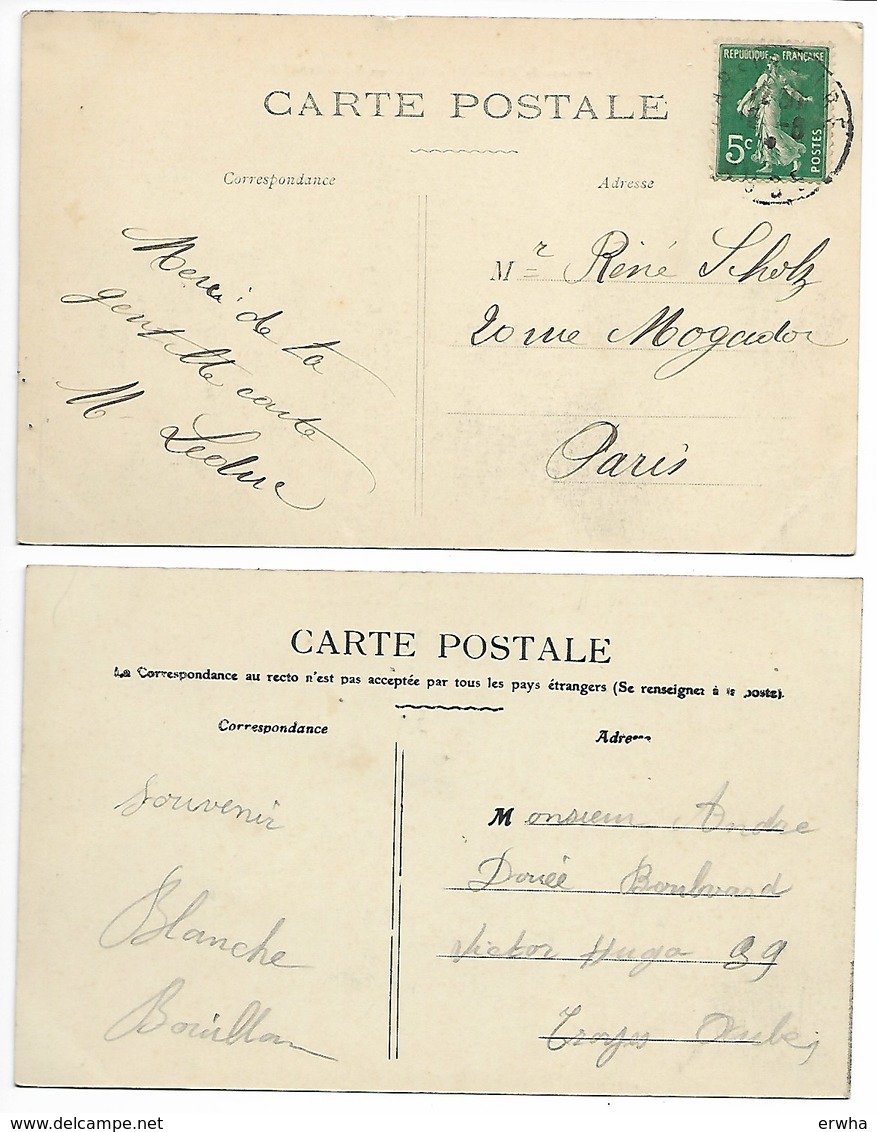 CARTE POSTALE
REPUBLIQUE FRANÇAISE
5c
POSTES
Correspondance
Adresse
Merci de la
gentille carte
M Leduc
Mr René Scholz
20 rue Mogador
Paris
CARTE POSTALE
La Correspondance au recto n'est pas acceptée par tous les pays étrangers (Se renseigner à la poste).
Correspondance
Adresse
Souvenir
Blanche
Bouillon
Monsieur Andre
Doueé Boulvard
Victor Hugo 39
Troyes Aube
erwha